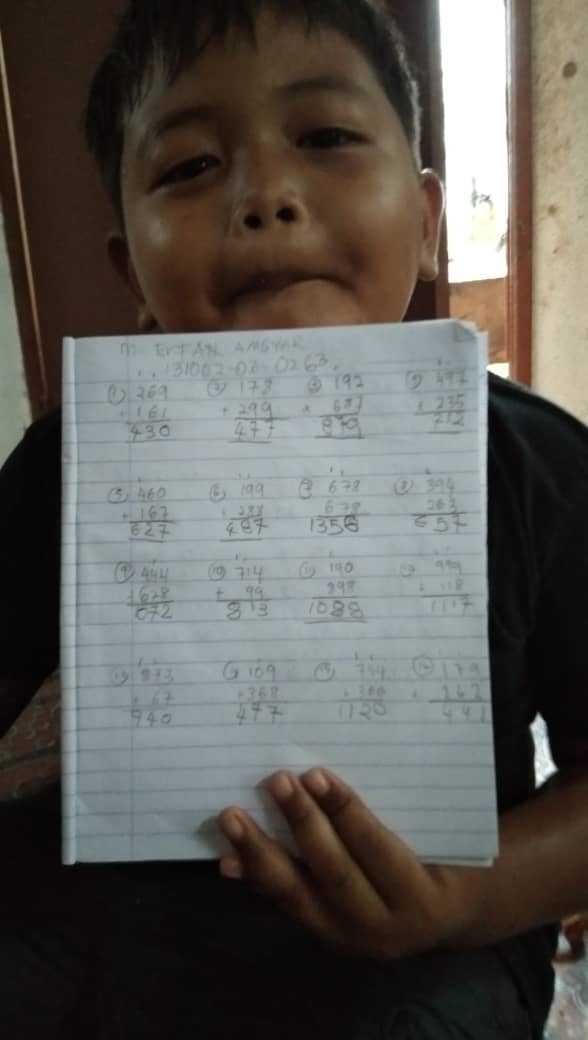 M ERFAN AMSYAR
131002-06-0263
① 269 ② 178 ③ 192 ④
+ 161 + 299 + 687 + 235
430 477 879 712
⑤ 460 ⑥ 199 ⑦ 678 ⑧ 394
+ 167 + 288 678 263
627 487 1356 657
⑨ 444 ⑩ 714 ⑪ 190 ⑫ 999
+ 628 + 99 898 + 118
072 813 1088 1117
⑬ 873 109 ⑮ 754 179
+ 67 + 368 + 366 + 262
940 477 1120 441